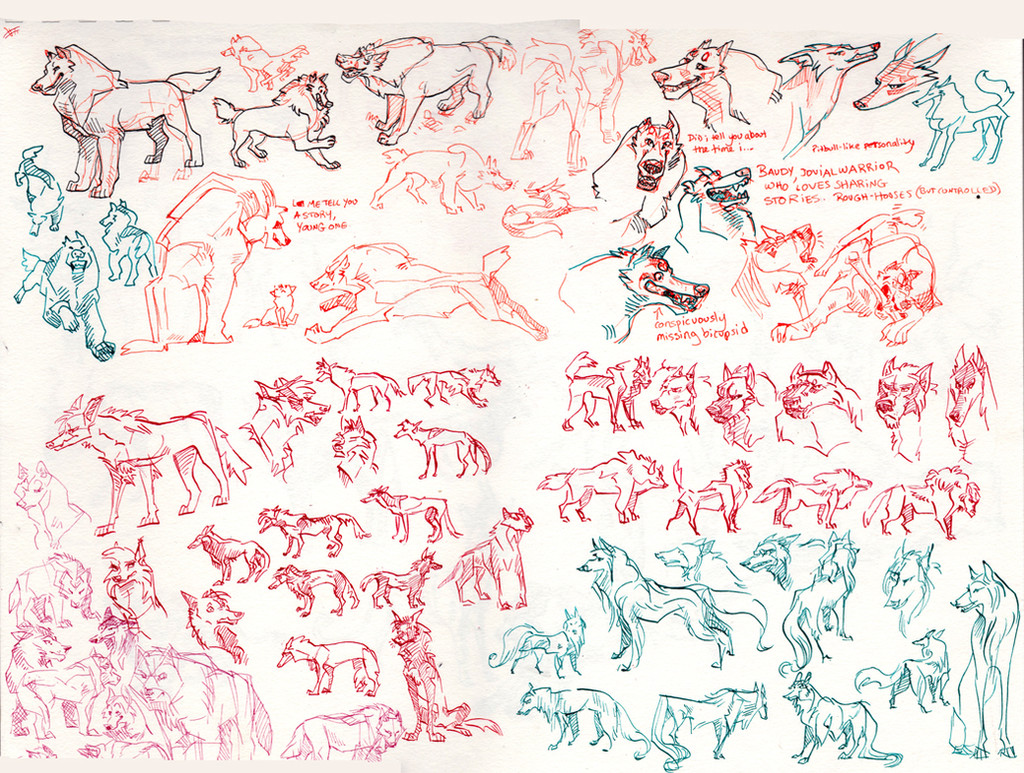 Did i tell you about
the time i...
Pitbull-like personality
BAUDY JOVIAL WARRIOR
WHO LOVES SHARING
STORIES. ROUGH-HOUSES (BUT CONTROLLED)
LET ME TELL YOU
A STORY,
YOUNG ONE.
conspicuously
missing bicuspid